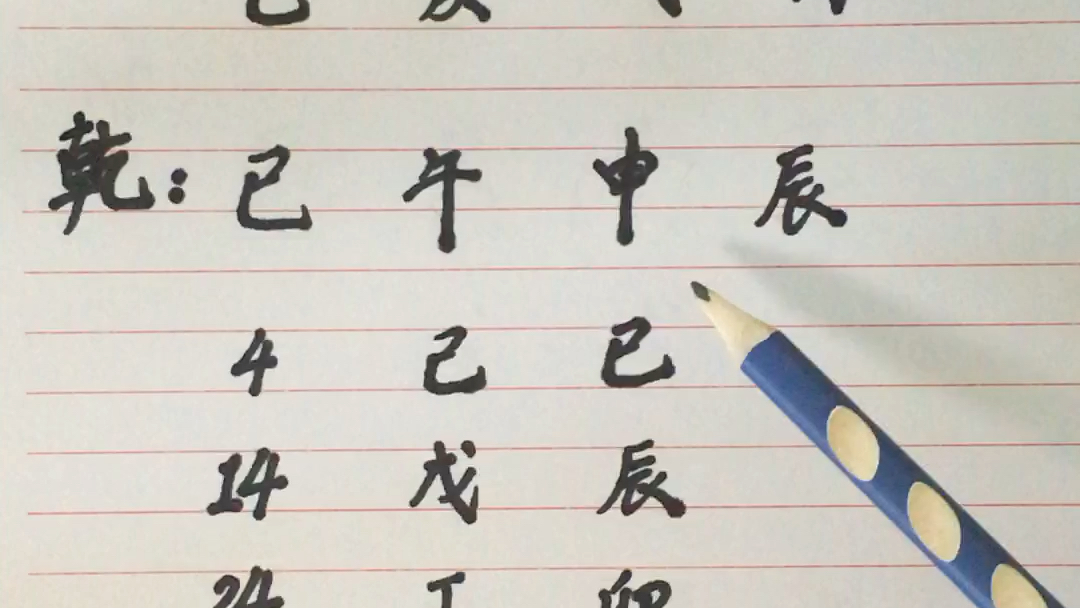 乾: 巳 午 申 辰
4 己 巳
14 戊 辰
24 丁 卯